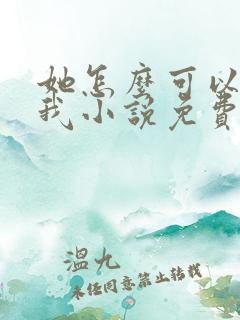 她怎麼可以
我小說免費
溫九
未任同意禁止转载